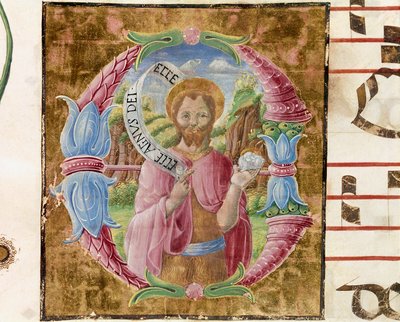 ECCE·AGNVS DEI·
ECCE